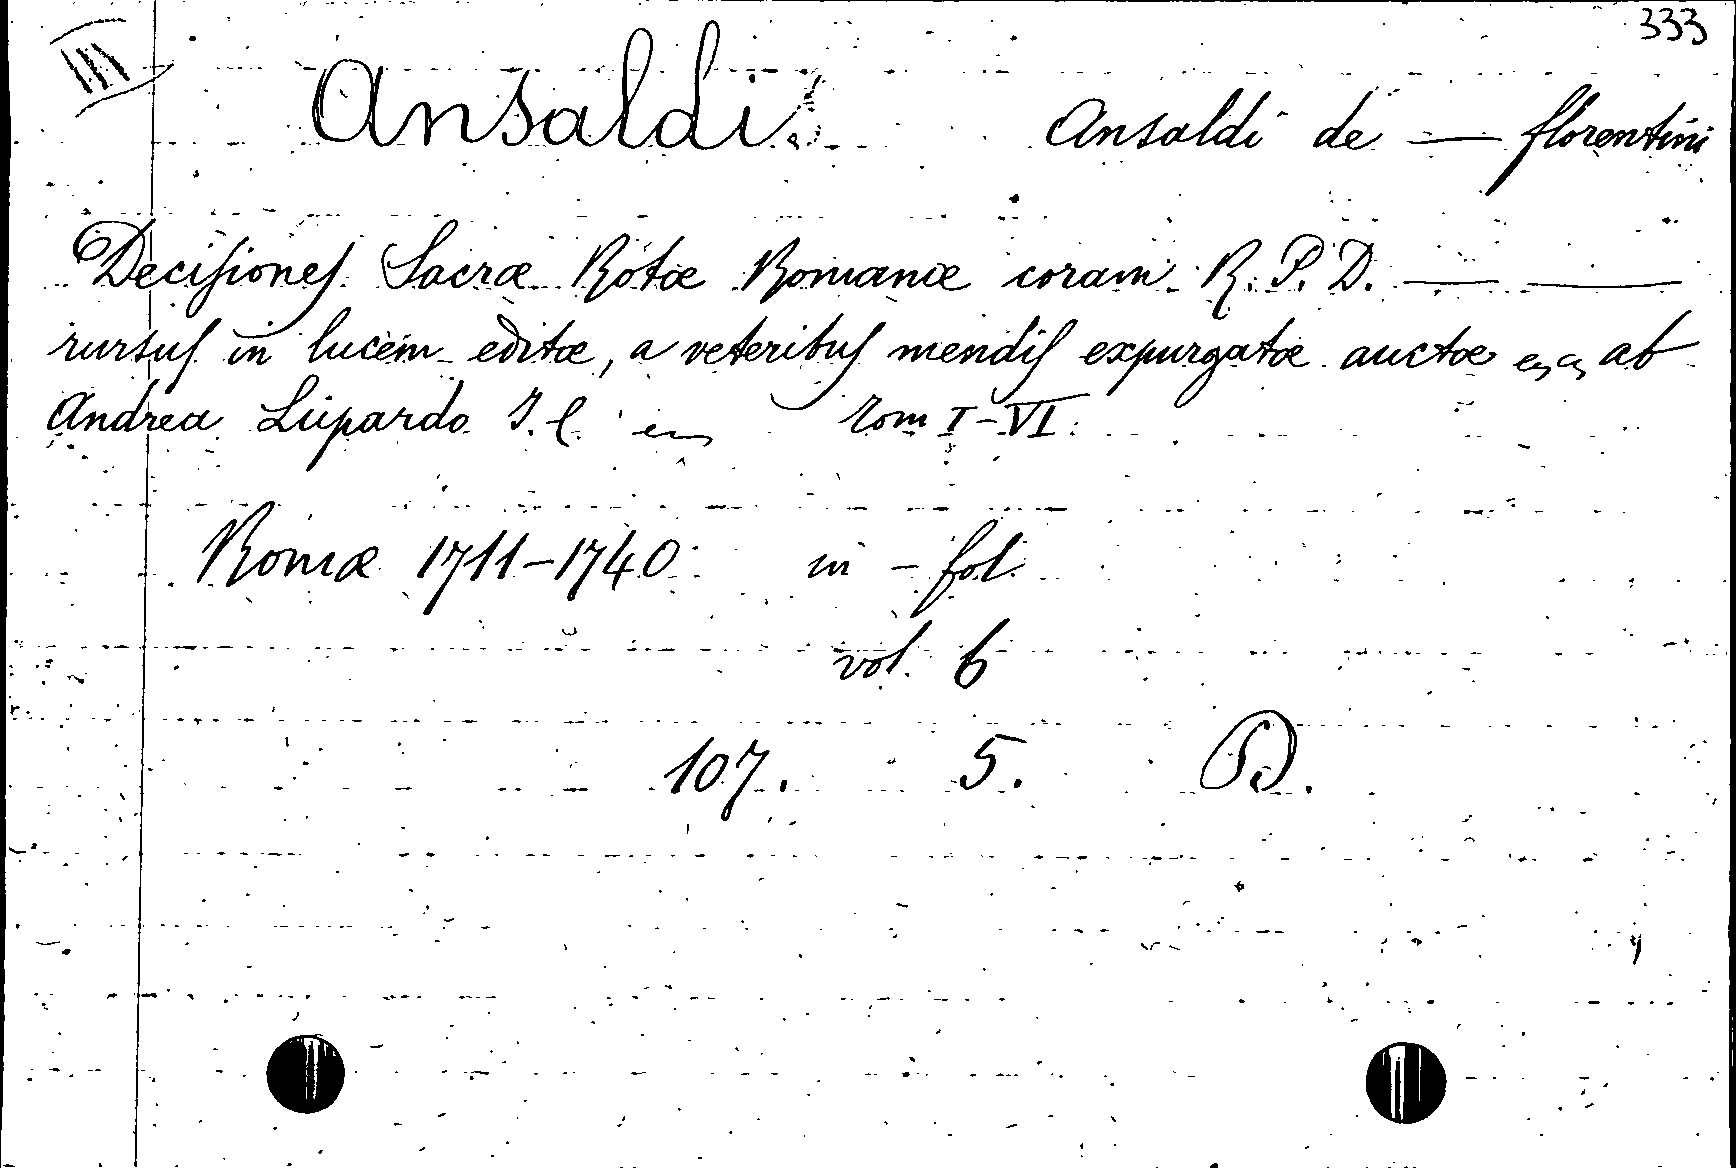 333
III
Ansaldi Ansaldi de — florentini
Decisiones Sacræ Rotæ Romanæ coram R. P. D. — —
rursus in lucem editæ, a veteribus mendis expurgatæ auctæ ab
Andrea Lupardo I. C. Tom I–VI.
Romæ 1711–1740 in – fol.
vol. 6
107. 5. B.